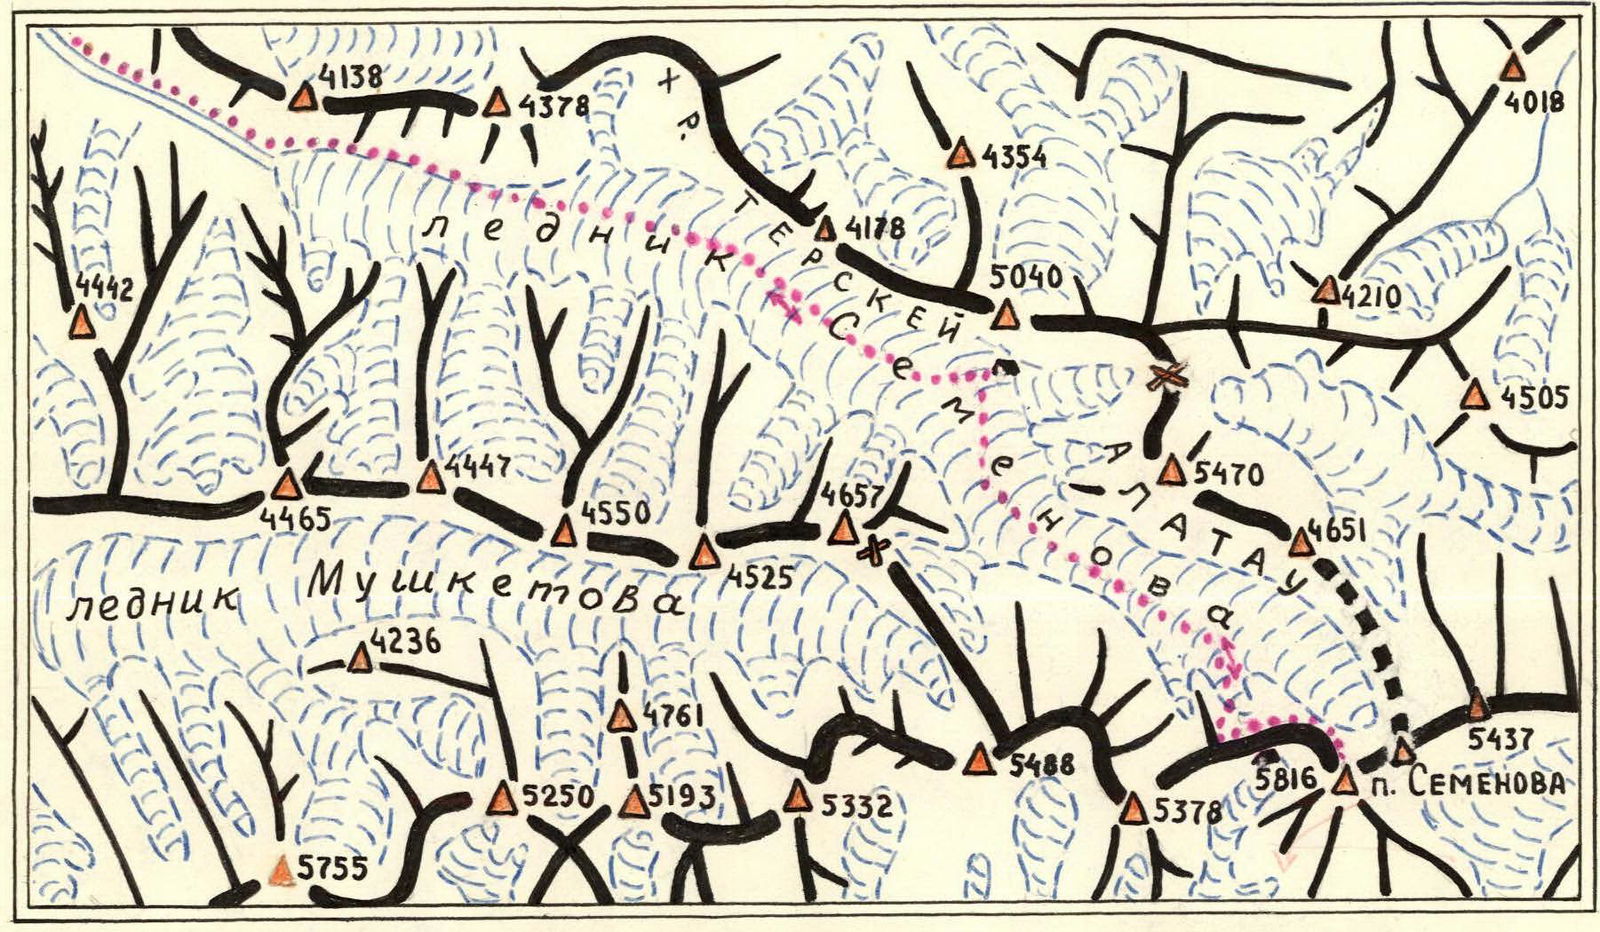 4138
4378
4018
хр. ТЕРСКЕЙ АЛАТАУ
4354
4178
5040
4210
4442
ледник Семенова
4505
4447
5470
4465
4550
4657
4651
4525
ледник Мушкетова
4236
4761
5437
5488
5816
п. СЕМЕНОВА
5250
5193
5332
5378
5755